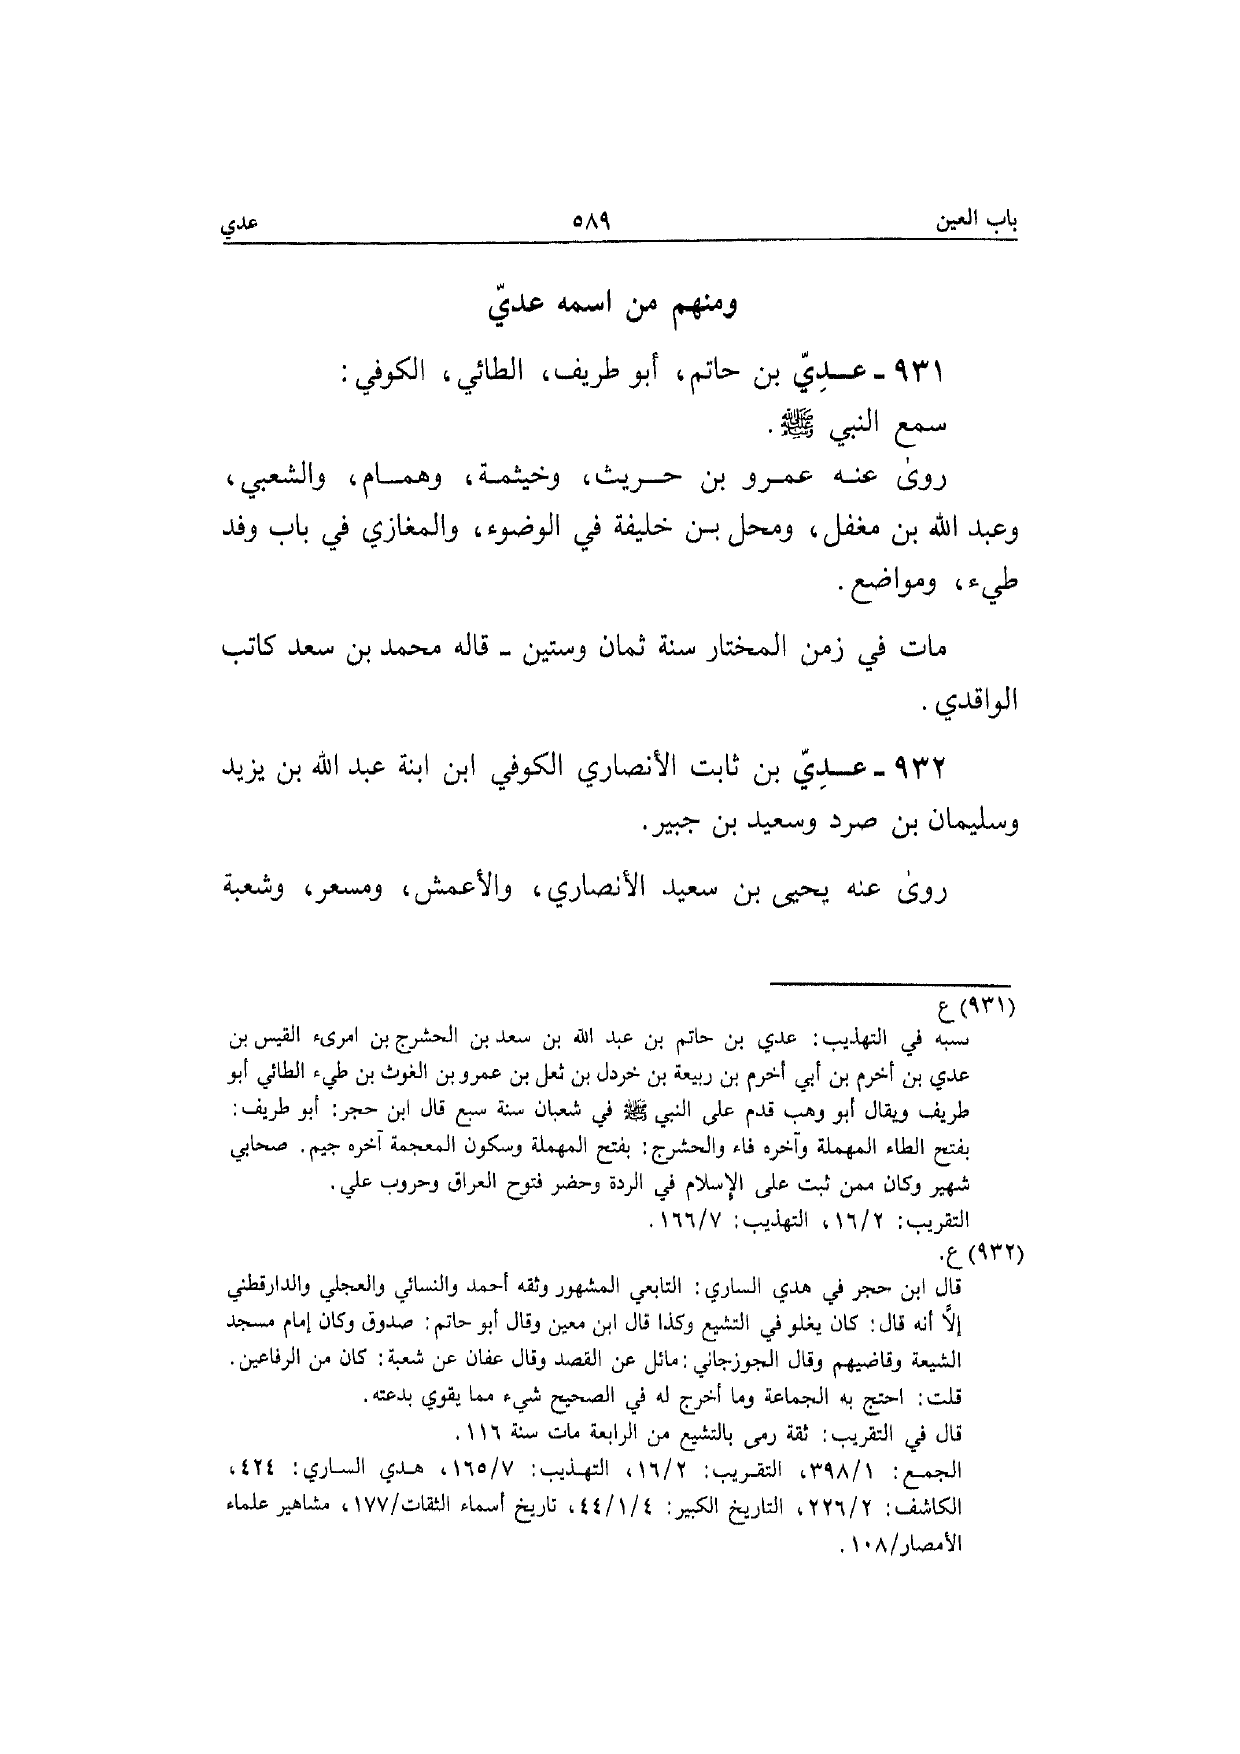 باب العين ٥٨٩ عدي
ومنهم من اسمه عديّ
٩٣١ ـ عـدِيّ بن حاتم، أبو طريف، الطائي، الكوفي:
سمع النبي ﷺ.
روىٰ عنه عمرو بن حريث، وخيثمة، وهمام، والشعبي،
وعبد الله بن مغفل، ومحل بن خليفة في الوضوء، والمغازي في باب وفد
طيء، ومواضع.
مات في زمن المختار سنة ثمان وستين ـ قاله محمد بن سعد كاتب
الواقدي.
٩٣٢ ـ عـدِيّ بن ثابت الأنصاري الكوفي ابن ابنة عبد الله بن يزيد
وسليمان بن صرد وسعيد بن جبير.
روىٰ عنه يحيى بن سعيد الأنصاري، والأعمش، ومسعر، وشعبة
(٩٣١) ع
نسبه في التهذيب: عدي بن حاتم بن عبد الله بن سعد بن الحشرج بن امرىء القيس بن
عدي بن أخرم بن أبي أخرم بن ربيعة بن خردل بن ثعل بن عمرو بن الغوث بن طيء الطائي أبو
طريف ويقال أبو وهب قدم على النبي ﷺ في شعبان سنة سبع قال ابن حجر: أبو طريف:
بفتح الطاء المهملة وآخره فاء والحشرج: بفتح المهملة وسكون المعجمة آخره جيم. صحابي
شهير وكان ممن ثبت على الإسلام في الردة وحضر فتوح العراق وحروب علي.
التقريب: ١٦/٢، التهذيب: ١٦٦/٧.
(٩٣٢) ع.
قال ابن حجر في هدي الساري: التابعي المشهور وثقه أحمد والنسائي والعجلي والدارقطني
إلَّا أنه قال: كان يغلو في التشيع وكذا قال ابن معين وقال أبو حاتم: صدوق وكان إمام مسجد
الشيعة وقاضيهم وقال الجوزجاني: مائل عن القصد وقال عفان عن شعبة: كان من الرفاعين.
قلت: احتج به الجماعة وما أخرج له في الصحيح شيء مما يقوي بدعته.
قال في التقريب: ثقة رمى بالتشيع من الرابعة مات سنة ١١٦.
الجمع: ٣٩٨/١، التقريب: ١٦/٢، التهذيب: ١٦٥/٧، هدي الساري: ٤٢٤،
الكاشف: ٢٢٦/٢، التاريخ الكبير: ٤٤/١/٤، تاريخ أسماء الثقات/١٧٧، مشاهير علماء
الأمصار/١٠٨.